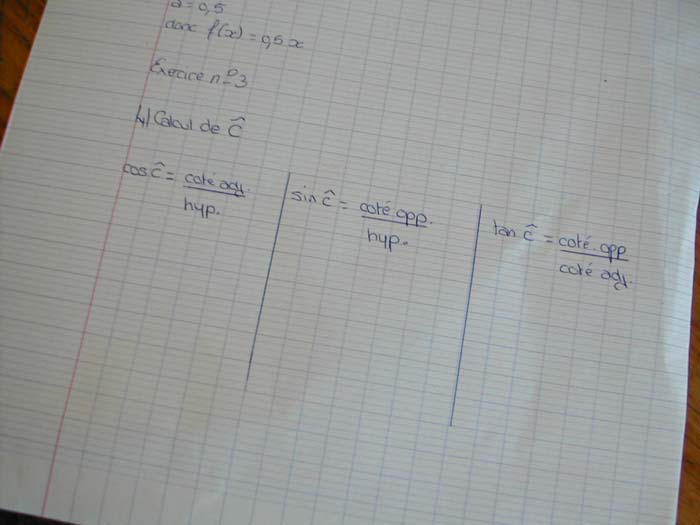 a = 0,5
donc f(x) = 0,5x
Exercice n° 3
1/ Calcul de Ĉ
cos Ĉ = coté adj. / hyp.
sin Ĉ = coté opp. / hyp.
tan Ĉ = coté opp / coté adj.